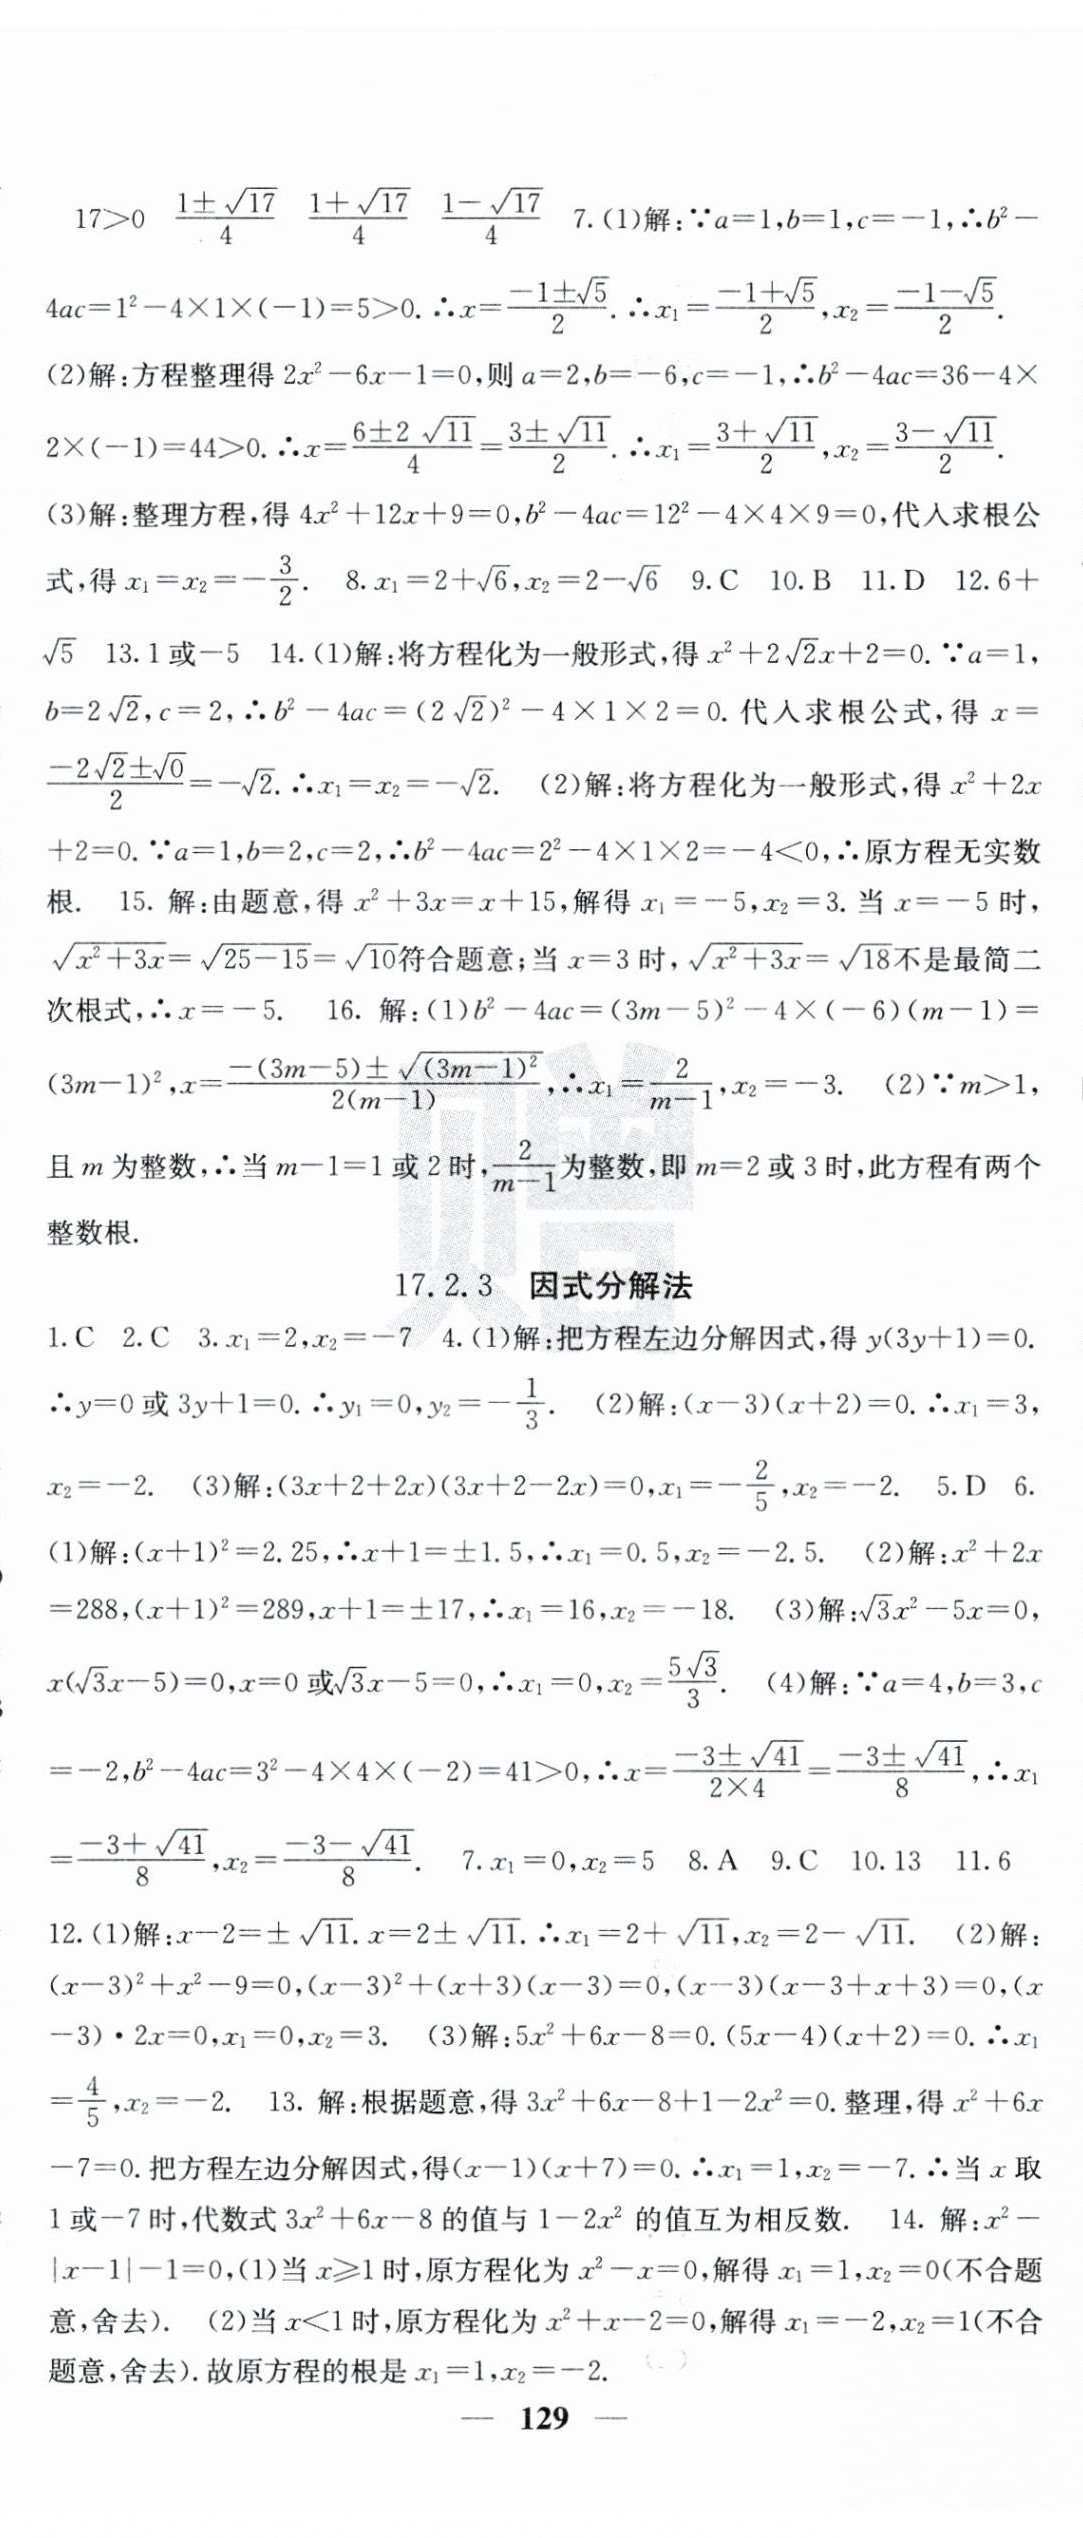 17>0 $\frac{1±\sqrt{17}}{4}$ $\frac{1+\sqrt{17}}{4}$ $\frac{1-\sqrt{17}}{4}$ 7.(1)解:∵a=1,b=1,c=-1,∴b²-
4ac=1²-4×1×(-1)=5>0.∴x=$\frac{-1±\sqrt{5}}{2}$.∴x₁=$\frac{-1+\sqrt{5}}{2}$,x₂=$\frac{-1-\sqrt{5}}{2}$.
(2)解:方程整理得 2x²-6x-1=0,则 a=2,b=-6,c=-1,∴b²-4ac=36-4×
2×(-1)=44>0.∴x=$\frac{6±2\sqrt{11}}{4}$=$\frac{3±\sqrt{11}}{2}$.∴x₁=$\frac{3+\sqrt{11}}{2}$,x₂=$\frac{3-\sqrt{11}}{2}$.
(3)解:整理方程,得 4x²+12x+9=0,b²-4ac=12²-4×4×9=0,代入求根公
式,得 x₁=x₂=-$\frac{3}{2}$. 8.x₁=2+√6,x₂=2-√6 9.C 10.B 11.D 12.6+
√5 13.1或-5 14.(1)解:将方程化为一般形式,得 x²+2√2x+2=0.∵a=1,
b=2√2,c=2,∴b²-4ac=(2√2)²-4×1×2=0.代入求根公式,得 x=
$\frac{-2\sqrt{2}±\sqrt{0}}{2}$=-√2.∴x₁=x₂=-√2. (2)解:将方程化为一般形式,得 x²+2x
+2=0.∵a=1,b=2,c=2,∴b²-4ac=2²-4×1×2=-4<0,∴原方程无实数
根. 15. 解:由题意,得 x²+3x=x+15,解得 x₁=-5,x₂=3.当 x=-5 时,
$\sqrt{x²+3x}$=$\sqrt{25-15}$=$\sqrt{10}$符合题意;当 x=3 时,$\sqrt{x²+3x}$=$\sqrt{18}$不是最简二
次根式,∴x=-5. 16. 解:(1)b²-4ac=(3m-5)²-4×(-6)(m-1)=
(3m-1)²,x=$\frac{-(3m-5)±\sqrt{(3m-1)²}}{2(m-1)}$,∴x₁=$\frac{2}{m-1}$,x₂=-3. (2)∵m>1,
且 m 为整数,∴当 m-1=1 或 2 时,$\frac{2}{m-1}$为整数,即 m=2 或 3 时,此方程有两个
整数根.
17.2.3 因式分解法
1.C 2.C 3.x₁=2,x₂=-7 4.(1)解:把方程左边分解因式,得 y(3y+1)=0.
∴y=0 或 3y+1=0.∴y₁=0,y₂=-$\frac{1}{3}$. (2)解:(x-3)(x+2)=0.∴x₁=3,
x₂=-2. (3)解:(3x+2+2x)(3x+2-2x)=0,x₁=-$\frac{2}{5}$,x₂=-2. 5.D 6.
(1)解:(x+1)²=2.25,∴x+1=±1.5,∴x₁=0.5,x₂=-2.5. (2)解:x²+2x
=288,(x+1)²=289,x+1=±17,∴x₁=16,x₂=-18. (3)解:√3x²-5x=0,
x(√3x-5)=0,x=0 或√3x-5=0,∴x₁=0,x₂=$\frac{5\sqrt{3}}{3}$. (4)解:∵a=4,b=3,c
=-2,b²-4ac=3²-4×4×(-2)=41>0,∴x=$\frac{-3±\sqrt{41}}{2×4}$=$\frac{-3±\sqrt{41}}{8}$,∴x₁
=$\frac{-3+\sqrt{41}}{8}$,x₂=$\frac{-3-\sqrt{41}}{8}$. 7.x₁=0,x₂=5 8.A 9.C 10.13 11.6
12.(1)解:x-2=±$\sqrt{11}$.x=2±$\sqrt{11}$.∴x₁=2+$\sqrt{11}$,x₂=2-$\sqrt{11}$. (2)解:
(x-3)²+x²-9=0,(x-3)²+(x+3)(x-3)=0,(x-3)(x-3+x+3)=0,(x
-3)·2x=0,x₁=0,x₂=3. (3)解:5x²+6x-8=0.(5x-4)(x+2)=0.∴x₁
=$\frac{4}{5}$,x₂=-2. 13. 解:根据题意,得 3x²+6x-8+1-2x²=0.整理,得 x²+6x
-7=0.把方程左边分解因式,得(x-1)(x+7)=0.∴x₁=1,x₂=-7.∴当 x 取
1 或-7 时,代数式 3x²+6x-8 的值与 1-2x² 的值互为相反数. 14. 解:x²-
|x-1|-1=0,(1)当 x≥1 时,原方程化为 x²-x=0,解得 x₁=1,x₂=0(不合题
意,舍去). (2)当 x<1 时,原方程化为 x²+x-2=0,解得 x₁=-2,x₂=1(不合
题意,舍去).故原方程的根是 x₁=1,x₂=-2.
— 129 —